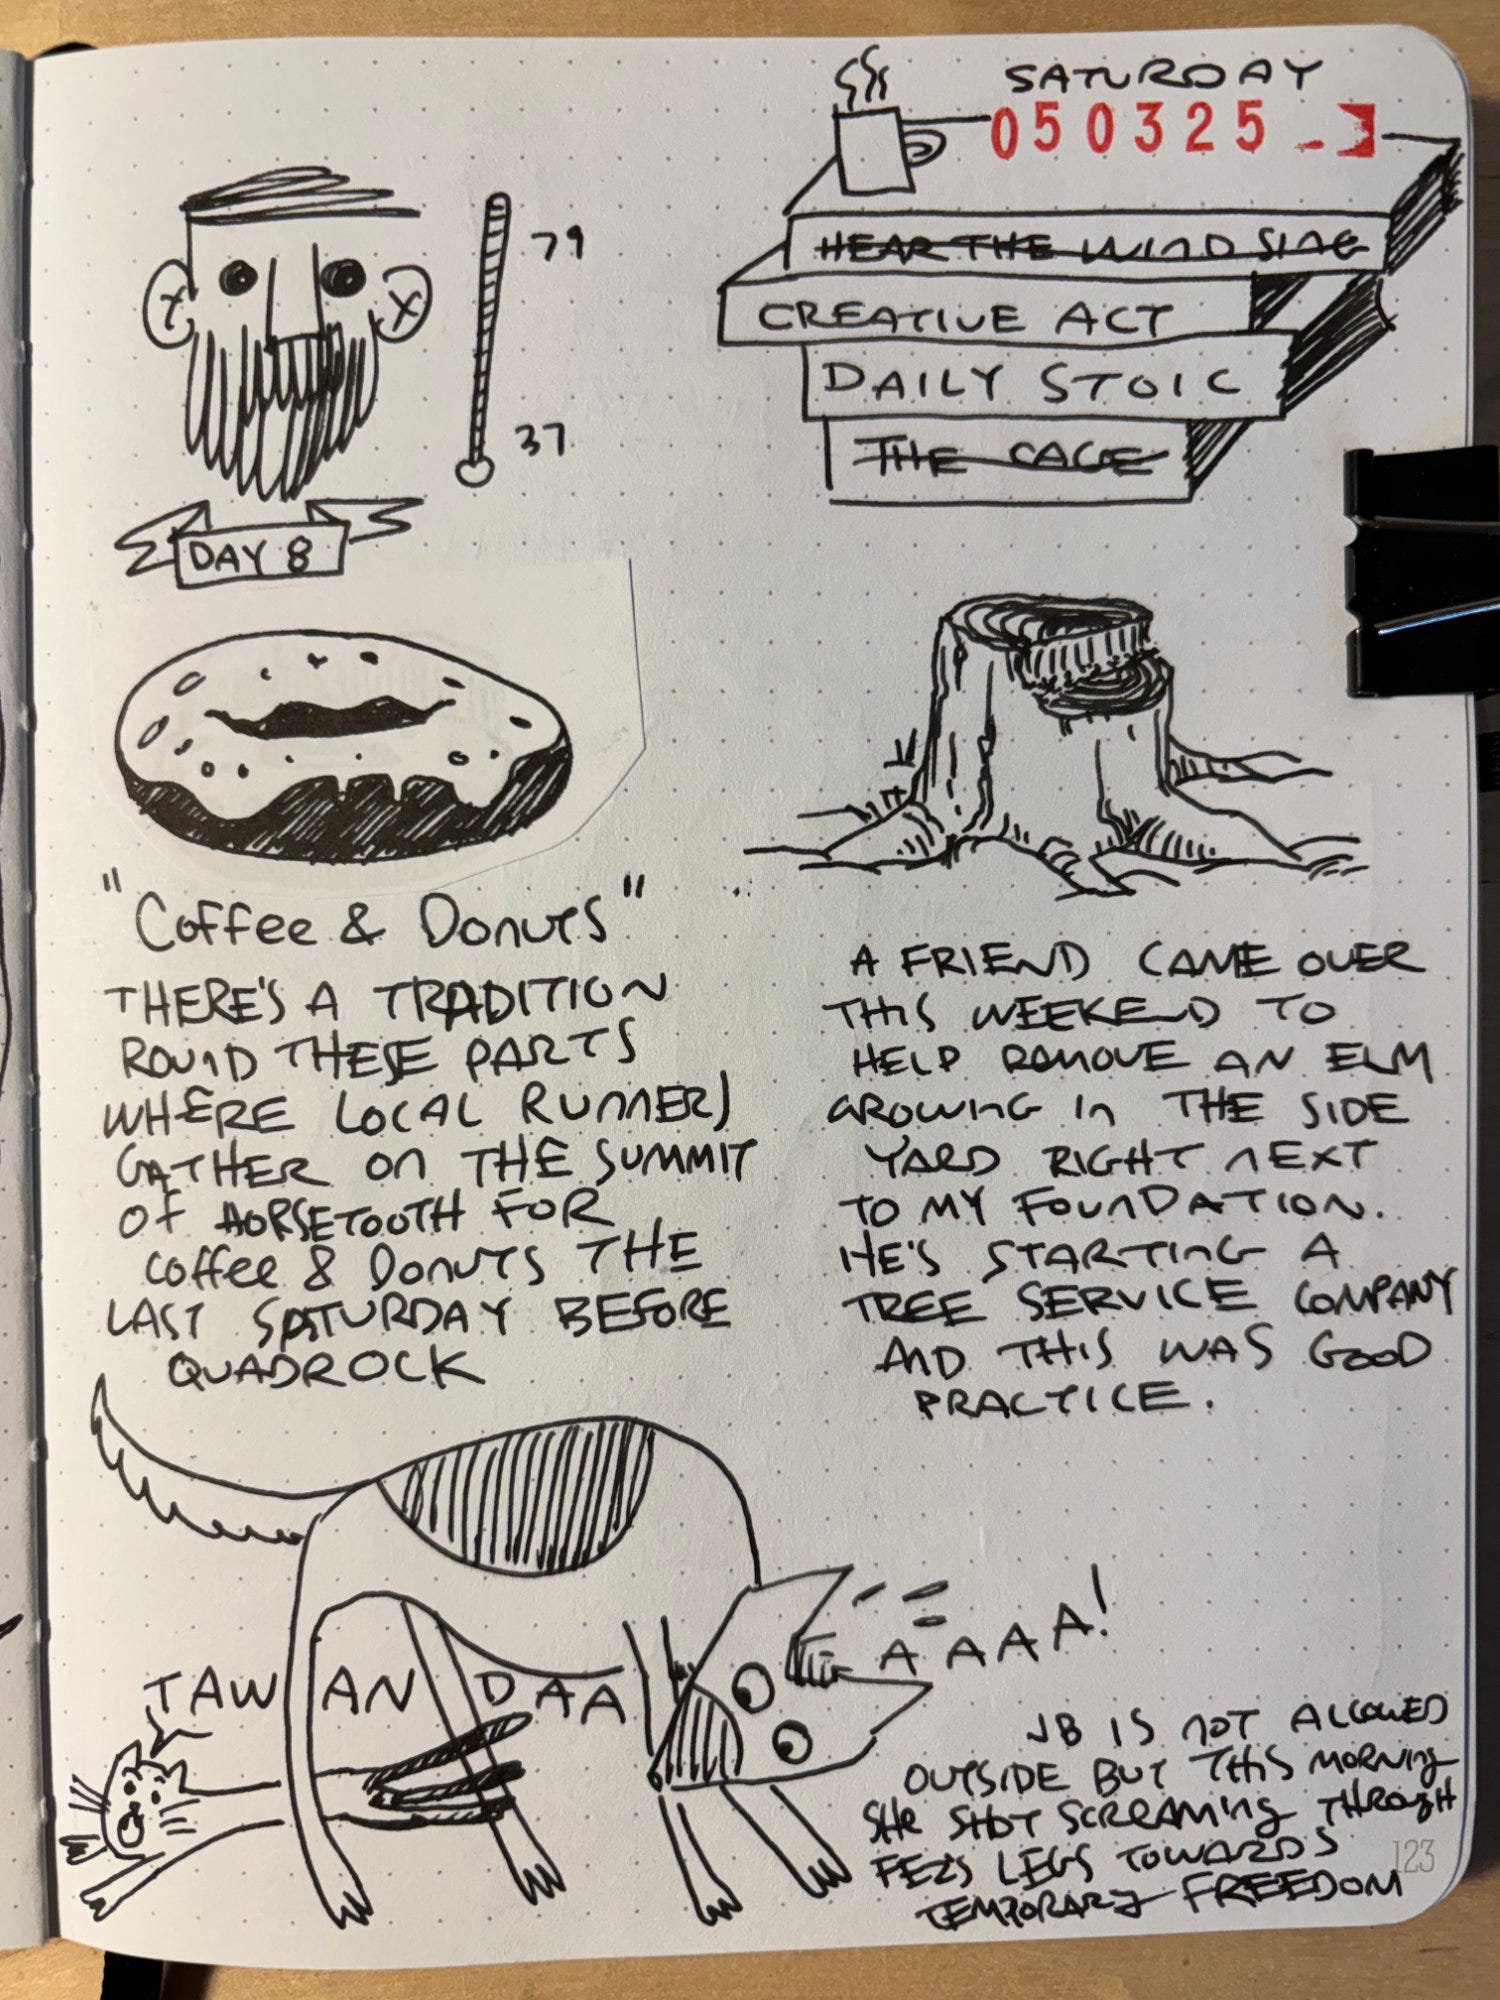 SATURDAY
050325
79
37
DAY 8
HEAR THE WIND SING
CREATIVE ACT
DAILY STOIC
THE CAGE
"Coffee & Donuts"
THERE'S A TRADITION
ROUND THESE PARTS
WHERE LOCAL RUNNERS
GATHER ON THE SUMMIT
OF HORSETOOTH FOR
Coffee & Donuts THE
LAST SATURDAY BEFORE
QUADROCK
A FRIEND CAME OVER
THIS WEEKEND TO
HELP REMOVE AN ELM
GROWING IN THE SIDE
YARD RIGHT NEXT
TO MY FOUNDATION.
HE'S STARTING A
TREE SERVICE COMPANY
AND THIS WAS GOOD
PRACTICE.
TAWANDAA AAAAA!
JB IS NOT ALLOWED
OUTSIDE BUT THIS MORNING
SHE SHOT SCREAMING THROUGH
FEZS LEGS TOWARDS
TEMPORARY FREEDOM
123